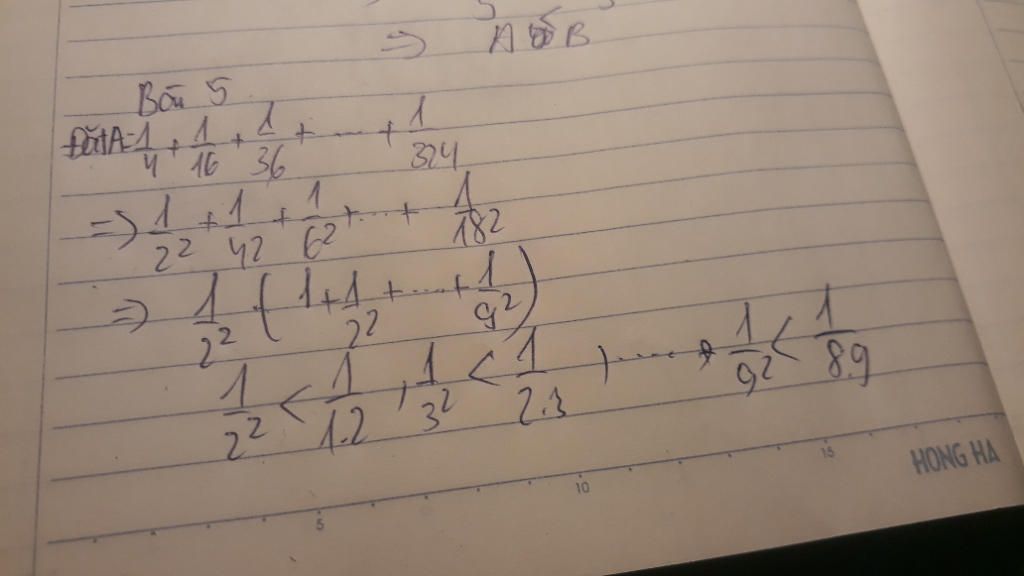 => A B
Bài 5
Đặt A = 1/4 + 1/16 + 1/36 + ... + 1/324
=> 1/2² + 1/4² + 1/6² + ... + 1/18²
=> 1/2² . ( 1 + 1/2² + ... + 1/9² )
1/2² < 1/1.2 , 1/3² < 1/2.3 , ... , 1/9² < 1/8.9
5 10 15 HONG HA